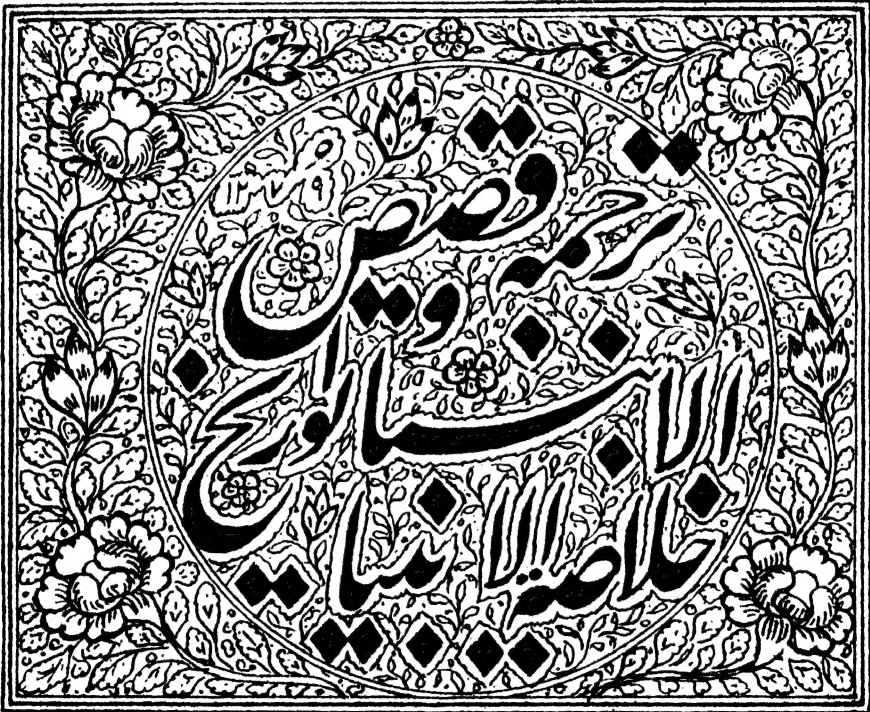 ترجمه قصص
الانبیا و تواریخ
خلاصة الانبیا